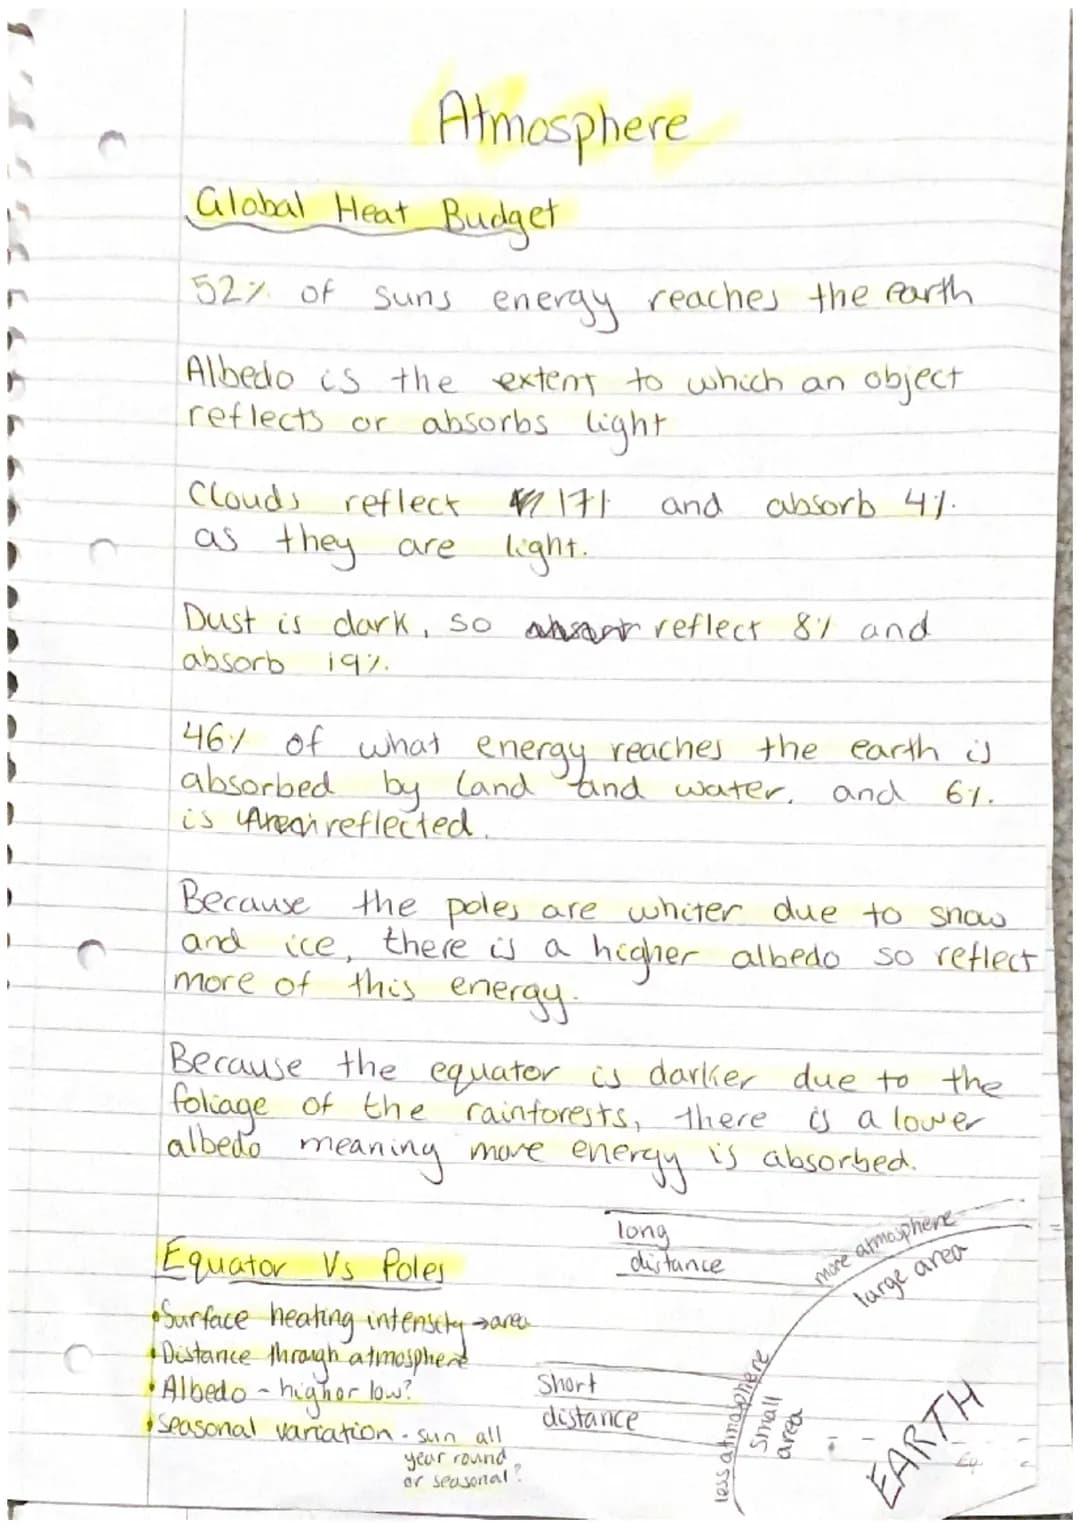 Atmosphere
Global Heat Budget
52% of suns energy reaches the earth
Albedo is the extent to which an object
reflects or absorbs light
Clouds reflect 17% and absorb 4%.
as they are light.
Dust is dark, so reflect 8% and
absorb 19%.
46% of what energy reaches the earth is
absorbed by land and water, and 6%.
is reflected.
Because the poles are whiter due to snow
and ice, there is a higher albedo so reflect
more of this energy.
Because the equator is darker due to the
foliage of the rainforests, there is a lower
albedo meaning more energy is absorbed.
Equator Vs Poles
•Surface heating intensity →area
•Distance through atmosphere
•Albedo - high or low?
•Seasonal variation - sun all
year round
or seasonal?
long
distance
more atmosphere
large area
Short
distance
less atmosphere
small
area
EARTH